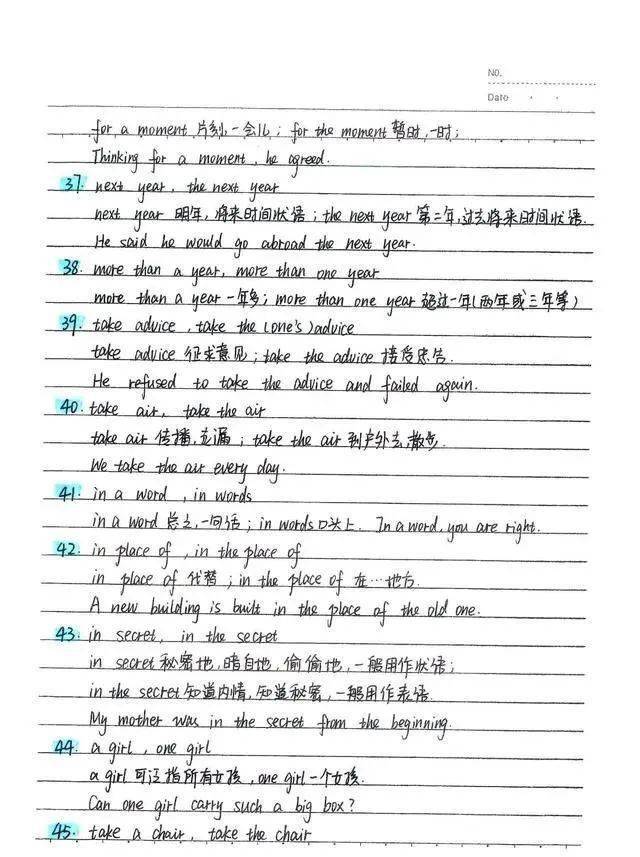 No.
Date
for a moment 片刻,一会儿; for the moment 暂时,一时;
Thinking for a moment, he agreed.
37. next year, the next year
next year 明年,将来时间状语; the next year 第二年,过去将来时间状语.
He said he would go abroad the next year.
38. more than a year, more than one year
more than a year 一年多; more than one year 超过一年(两年或三年等)
39. take advice, take the (one's) advice
take advice 征求意见; take the advice 接受忠告.
He refused to take the advice and failed again.
40. take air, take the air
take air 传播,走漏; take the air 到户外去,散步.
We take the air every day.
41. in a word, in words
in a word 总之,一句话; in words 口头上. In a word, you are right.
42. in place of, in the place of
in place of 代替; in the place of 在…地方.
A new building is built in the place of the old one.
43. in secret, in the secret
in secret 秘密地,暗自地,偷偷地,一般用作状语;
in the secret 知道内情,知道秘密,一般用作表语.
My mother was in the secret from the beginning.
44. a girl, one girl
a girl 可泛指所有女孩, one girl 一个女孩.
Can one girl carry such a big box?
45. take a chair, take the chair